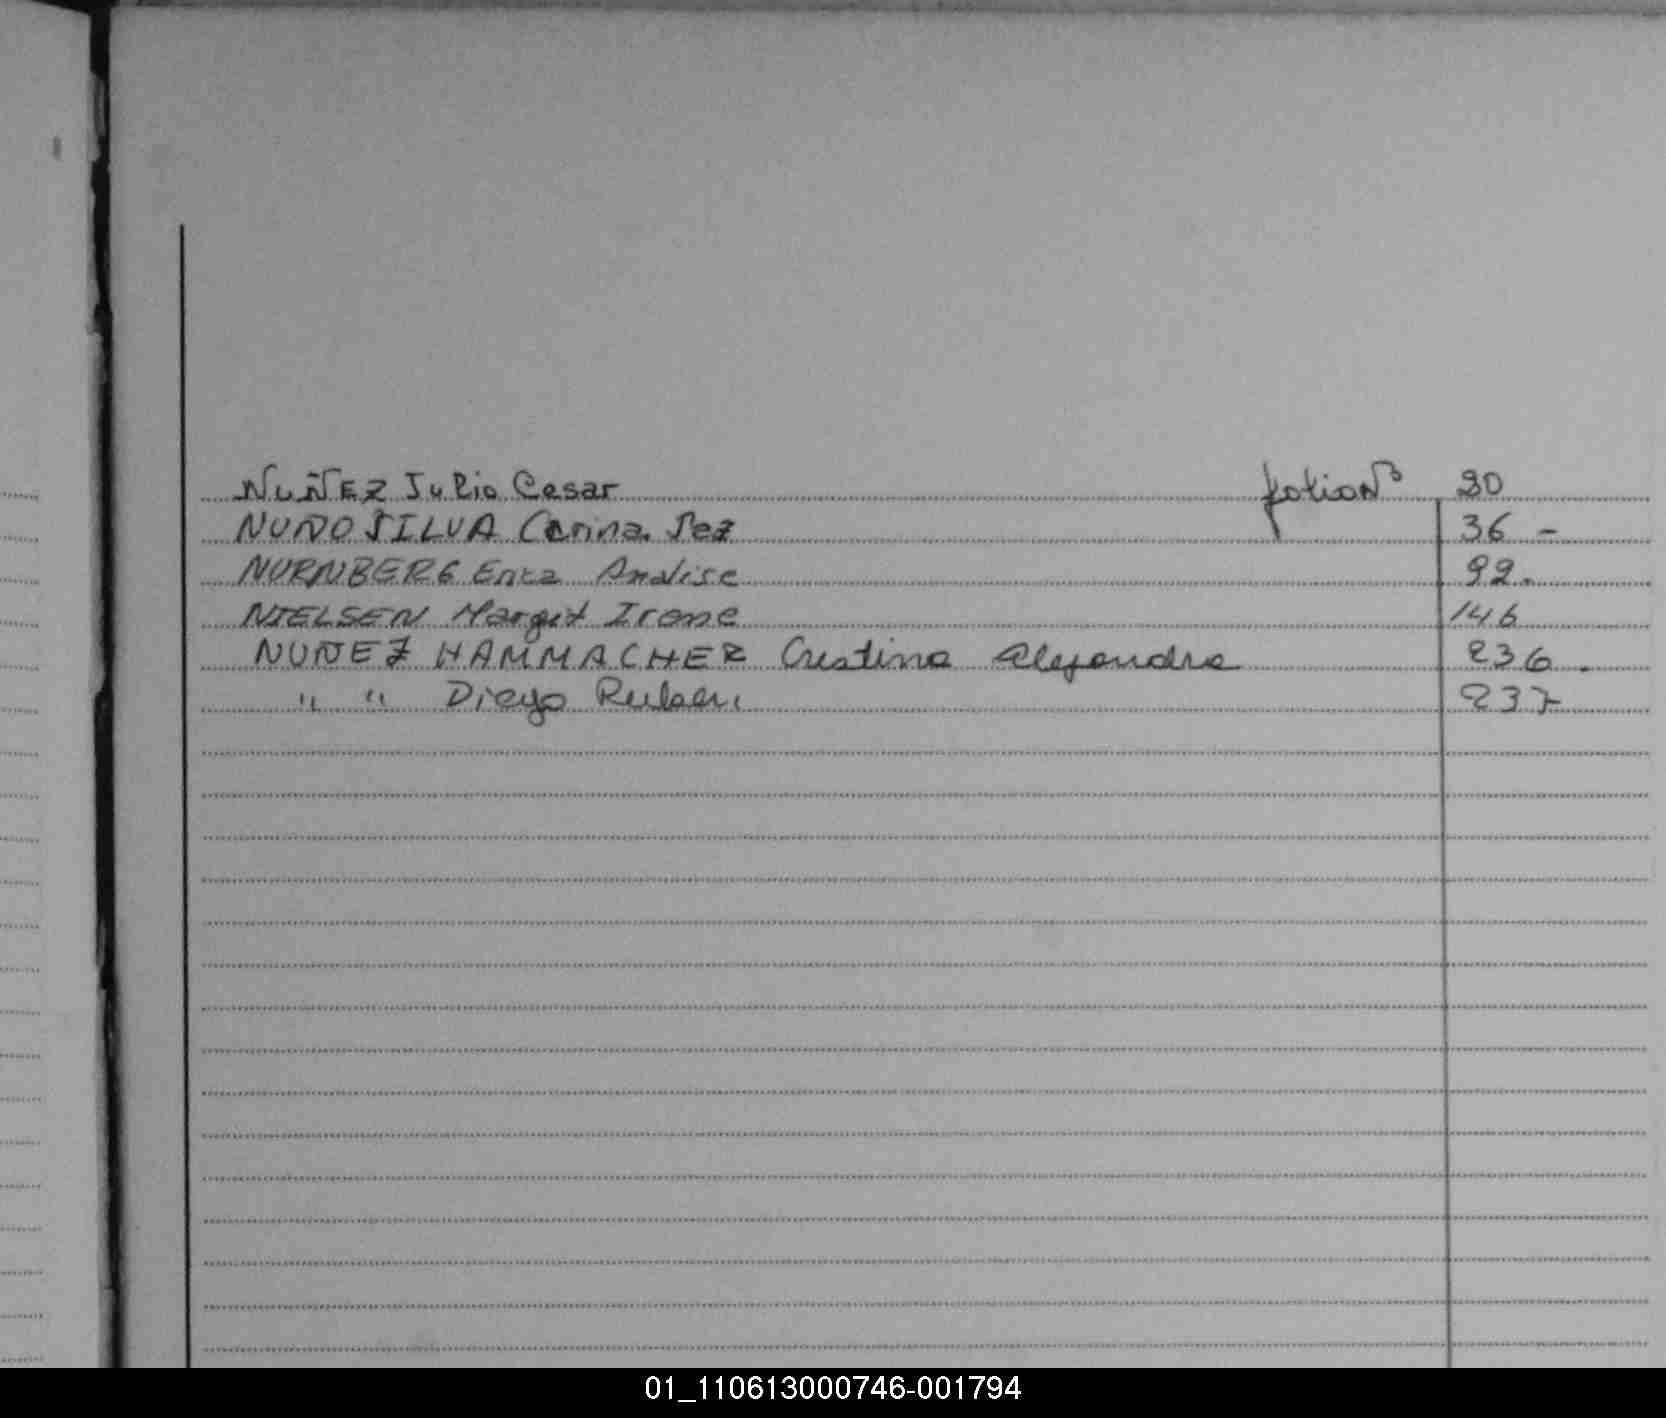 NUÑEZ Julio Cesar folio Nº 30
NUÑO SILVA Carina Paz 36 -
NURNBERG Enca Analise 92.
NIELSEN Margit Irene 146
NUÑEZ HAMMACHER Cristina Alejandra 236.
" " Diego Ruben 237
01_110613000746-001794